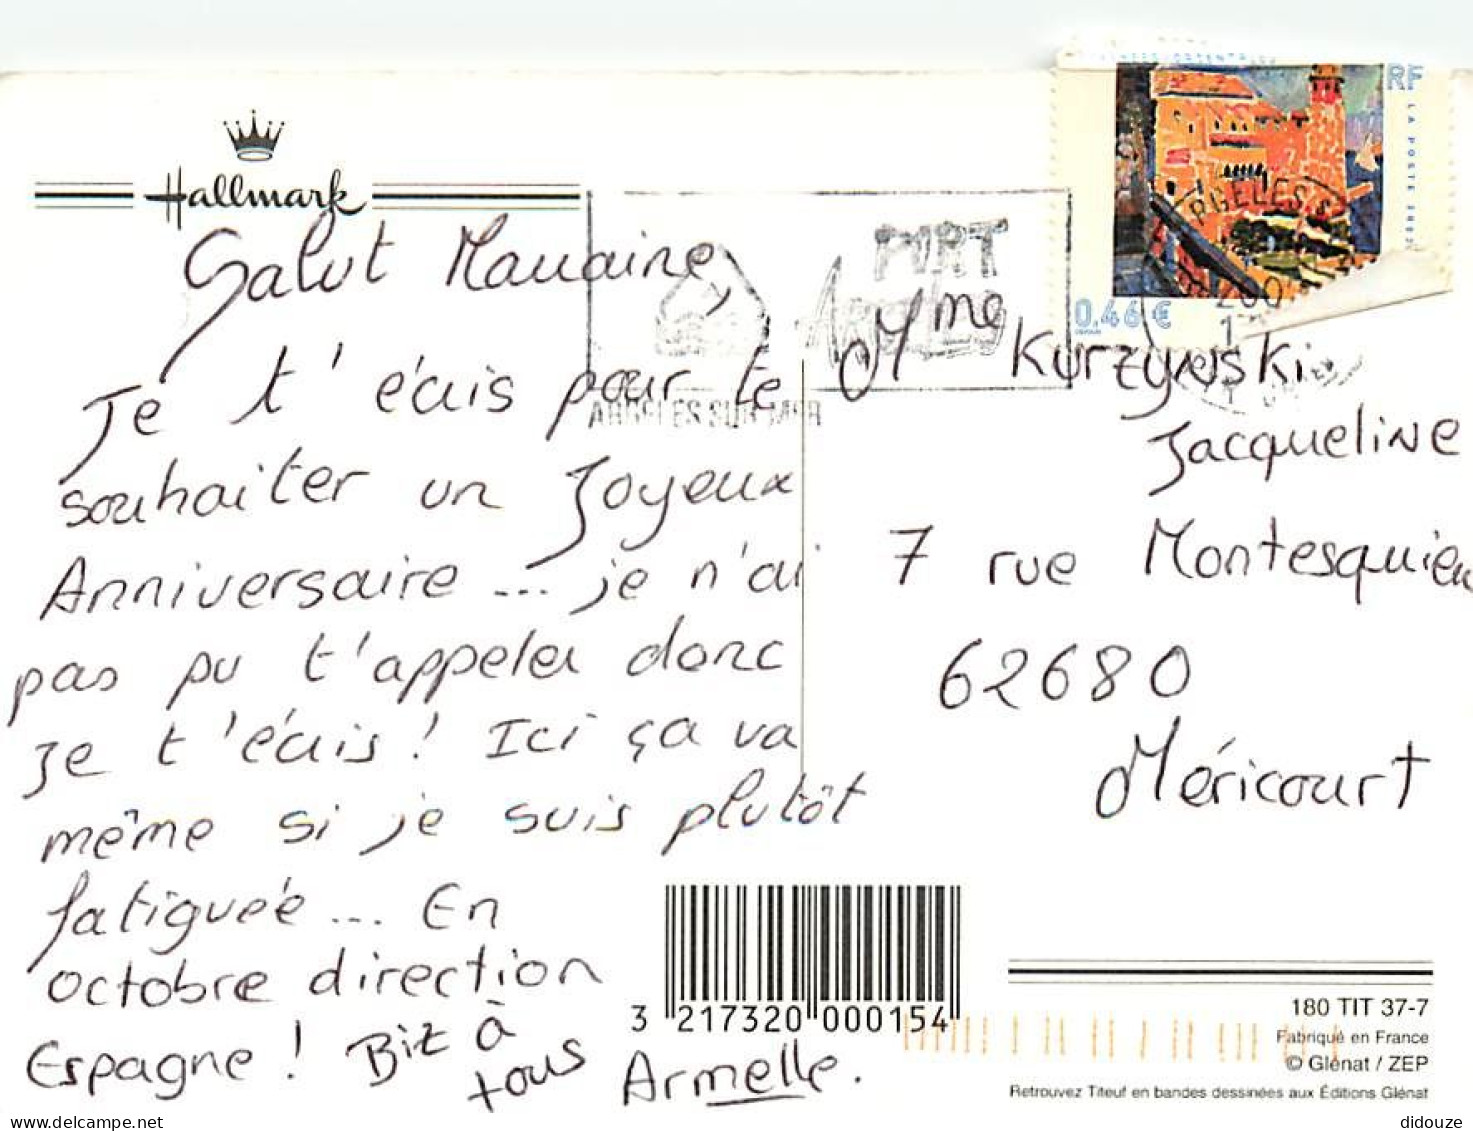 Hallmark
Salut Marraine,
Je t'écris pour te
souhaiter un Joyeux
Anniversaire ... je n'ai
pas pu t'appeler donc
je t'écris ! Ici ça va
même si je suis plutôt
fatiguée ... En
octobre direction
Espagne ! Biz à
tous Armelle.
RF
LA POSTE
0,46 €
PORT
ARGELÈS
ARGELES SUR MER
ARGELES S
Mme Kurzywski
Jacqueline
7 rue Montesquieu
62680
Méricourt
3 217320 000154
180 TIT 37-7
Fabriqué en France
© Glénat / ZEP
Retrouvez Titeuf en bandes dessinées aux Éditions Glénat
didouze